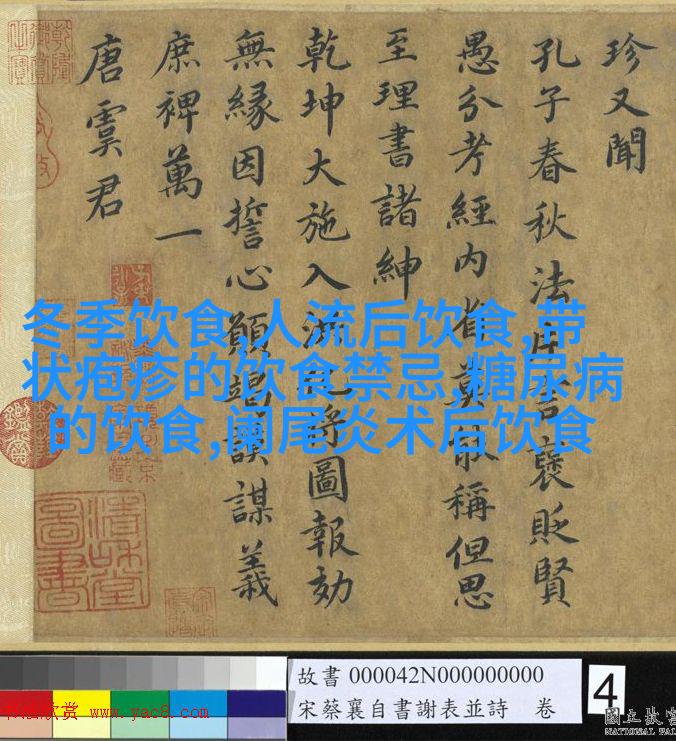 珍又聞
孔子春秋法片言褒貶賢
愚分考經内省莫能稱但思
至理書諸紳
乾坤大施入洪化將圖報効
無緣因誓心願竭謨謀義
庶裨萬一
唐虞君
冬季饮食,人流后饮食,带
状疱疹的饮食禁忌,糖尿病
的饮食,阑尾炎术后饮食
故書 000042N000000000
宋蔡襄自書謝表並詩 卷
4
书法欣赏 www.yac8.com
國立故宮
NATIONAL PAL